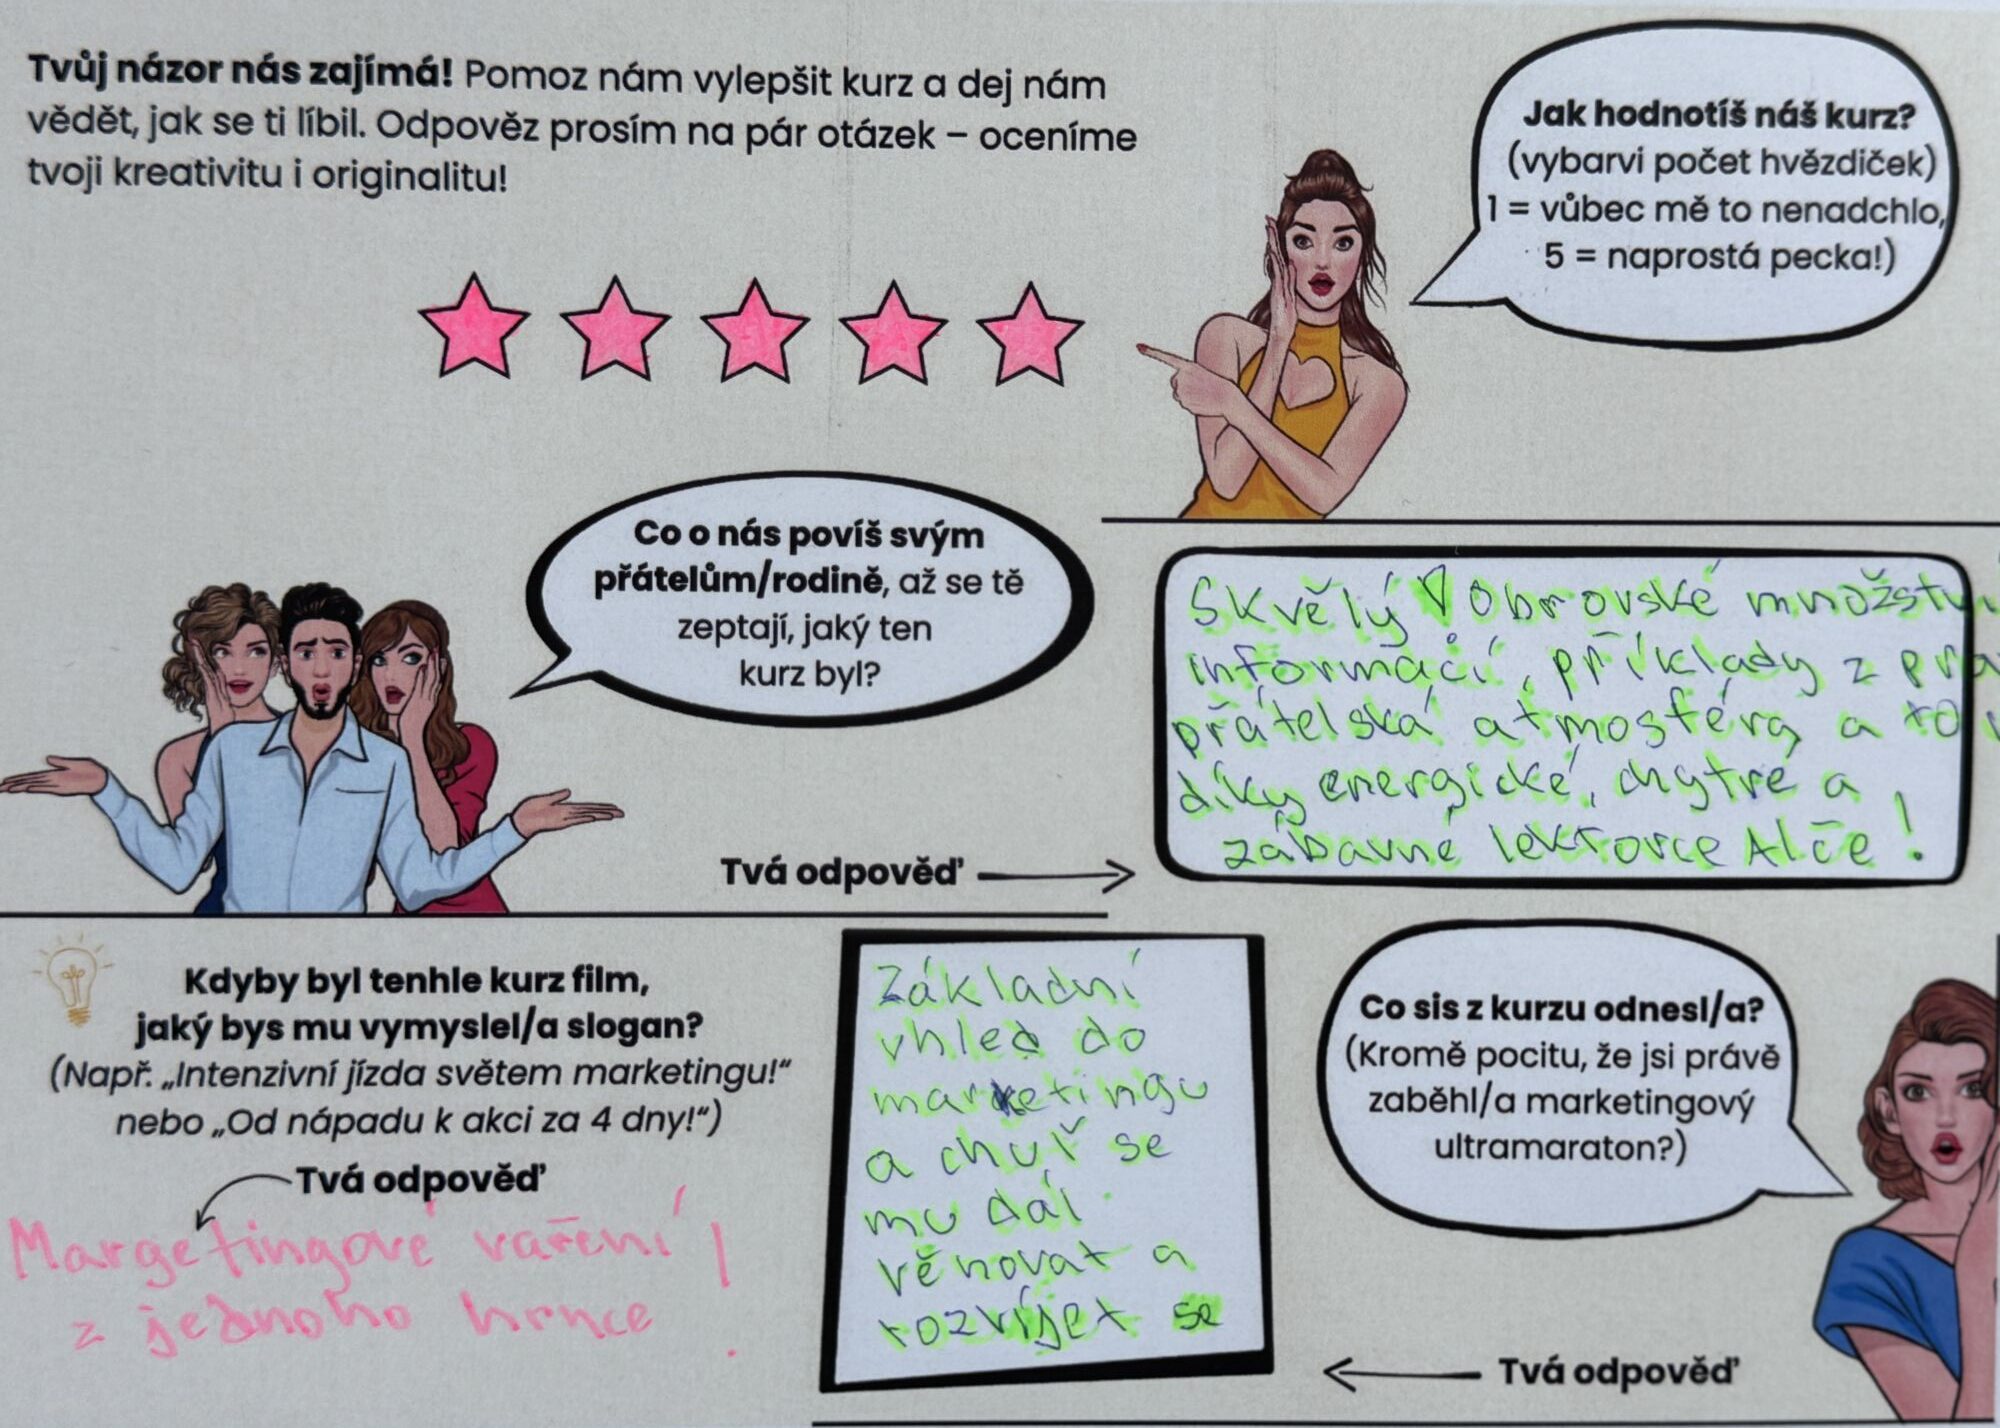 Tvůj názor nás zajímá! Pomoz nám vylepšit kurz a dej nám
vědět, jak se ti líbil. Odpověz prosím na pár otázek – oceníme
tvoji kreativitu i originalitu!
Jak hodnotíš náš kurz?
(vybarvi počet hvězdiček)
1 = vůbec mě to nenadchlo,
5 = naprostá pecka!)
Co o nás povíš svým
přátelům/rodině, až se tě
zeptají, jaký ten
kurz byl?
Tvá odpověď
Skvělý Obrovské množství
informací, příklady z pra
přátelská atmosféra a to
díky energické, chytré a
zábavné lektorce Alče!
Kdyby byl tenhle kurz film,
jaký bys mu vymyslel/a slogan?
(Např. „Intenzivní jízda světem marketingu!“
nebo „Od nápadu k akci za 4 dny!“)
Tvá odpověď
Margetingové vaření
z jednoho hrnce!
Co sis z kurzu odnesl/a?
(Kromě pocitu, že jsi právě
zaběhl/a marketingový
ultramaraton?)
Tvá odpověď
Základní
vhled do
marketingu
a chuť se
mu dál
věnovat a
rozvíjet se